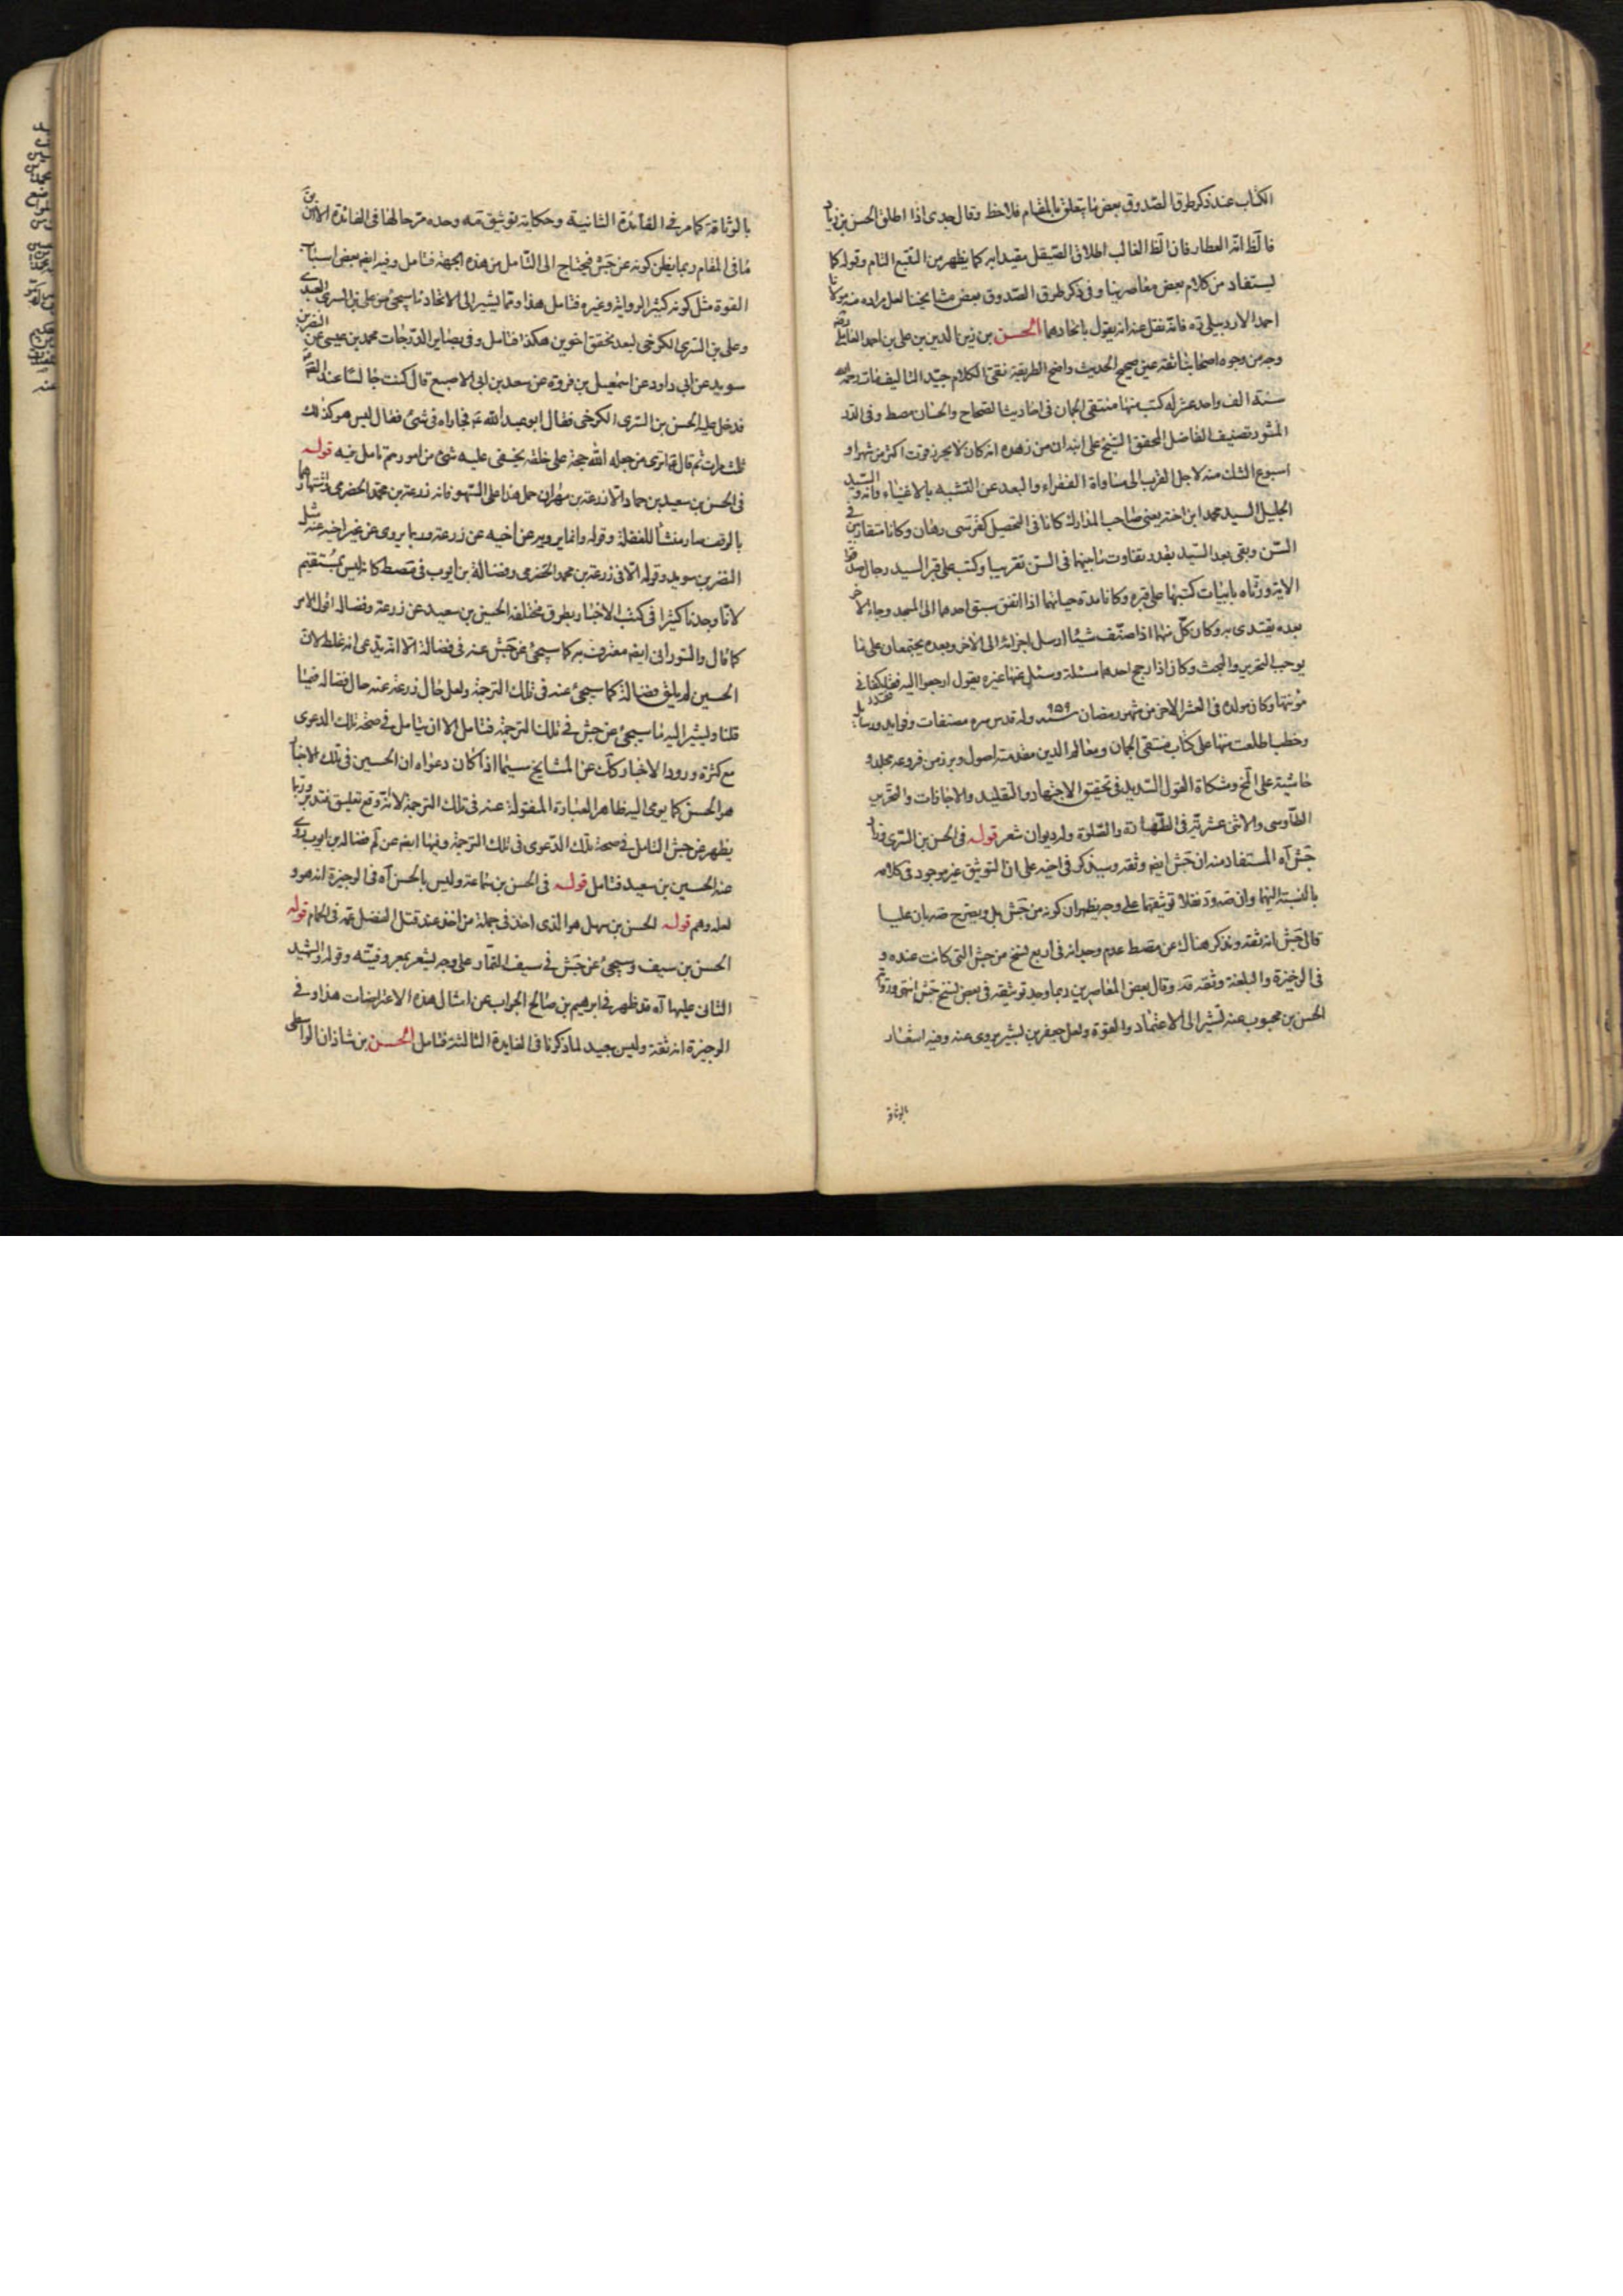 الكتاب عند ذكر طرق الصدوق بعض ما يتعلق بالمقام فلاحظ وقال جدى اذا اطلق الحسن بن زياد
فالظ انه العطار فان الظ الغالب اطلاق الصيقل مقيدا به كما يظهر من التتبع التام وقوله كما
يستفاد من كلام بعض معاصرينا وفى ذكر طرق الصدوق بعض مشايخنا لعل مراده منه مولانا
احمد الاردبيلى ره فانه نقل عنه انه يقول باتحادهما الحسن بن زين الدين بن على بن احمد العاملى رضه
وجه من وجوه اصحابنا ثقة عين صحيح الحديث واضح الطريقة نقى الكلام جيد التاليف مات رحمه الله
سنة الف واحد عشر له كتب منها منتقى الجمان فى احاديث الصحاح والحسان مصط وفى الدر
المنثور تصنيف الفاضل المحقق الشيخ على انه كان من زهده انه كان لا يحرز قوت اكثر من شهر او
اسبوع الشك منه لاجل القرب الى مساواة الفقراء والبعد عن التشبه بالاغنياء وانه و السيد
الجليل السيد محمد ابن اخته يعنى صاحب المدارك كانا فى التحصيل كفرسى رهان وكانا متقاربين فى
السن وبقى بعد السيد بقدر تفاوت ما بينهما فى السن تقريبا وكتب على قبر السيد رجال صدقوا
الاية ورثاه بابيات كتبها على قبره وكانا مدة حياتهما اذا اتفق سبق احدهما الى المسجد وجاء الاخر
بعده يقتدى به وكان كل منهما اذا صنف شيئا ارسل اجزائه الى الاخر وبعده يجتمعان على ما
يوجب التحرير والبحث وكان اذا رجح احدهما مسئلة وسئل عنها غيره يقول ارجعوا اليه فقد كفانى
مؤنتها وكان مولده فى العشر الاخر من شهر رمضان سنة ٩٥٩ وله قدس سره مصنفات وفوايد ورسايل
وخطب اطلعت منها على كتاب منتقى الجمان ومعالم الدين مقدمته اصول وبرز من فروعه مجلد و
حاشية على المخ ومشكاة القول السديد فى تحقيق الاجتهاد والتقليد والاجازات والتحرير
الطاوسى والاثنى عشرية فى الطهارة والصلوة وله ديوان شعر قوله فى الحسن بن السرى وزاد
جش اه المستفاد منه ان جش ايضا وثقه وسيذكر فى اخيه على ان التوثيق غير موجود فى كلامه
بالنسبة اليهما وان صه ود نقلا توثيقهما على وجه يظهر ان كونه من جش بل ويصرح صه بان عليا
قال جش انه ثقة ونذكر هناك عن مصط عدم وجدانه فى اربع نسخ من جش التى كانت عنده و
فى الوجيزة والبلغة وثقه قه وقال بعض المعاصرين ربما وجد توثيقه فى بعض نسخ جش انتهى ورواية
الحسن بن محبوب عنه تشير الى الاعتماد والقوة ولعل جعفر بن بشير يروى عنه وفيه اشعار
بالوثاقة
بالوثاقة كما مر فى الفائدة الثانية وحكاية توثيق قه وحده مر حالها فى الفائدة
ما فى المقام ربما يظن كونه عن جش فيحتاج الى التامل من هذه الجهة فتامل وفيه ايضا بعض اسباب
القوة مثل كونه كثير الرواية وغيره فتامل هذا ومما يشير الى الاتحاد ما سيجئ من على بن السرى العبدى
وعلى بن السرى الكرخى لبعد تحقق اخوين هكذا فتامل وفى بصاير الدرجات محمد بن عيسى عن النضر بن
سويد عن ابى داود عن اسمعيل بن فروة عن سعد بن ابى الاصبغ قال كنت جالسا عند الصم
فدخل عليه الحسن بن السرى الكرخى فقال ابو عبد الله ع فجاراه فى شئ فقال ليس هو كذلك
ثلث مرات ثم قال اترى من جعله الله حجة على خلقه يخفى عليه شئ من امورهم تامل فيه قوله
فى الحسن بن سعيد بن حماد الا زرعة بن مهران حمل هذا على السهو فانه زرعة بن محمد الحضرمى واشتهارهما
بالوقف صار منشأ للغفلة وقوله وانما يرويه عن اخيه عن زرعة وربما يروى عن غير اخيه عنه مثل
النضر بن سويد وقوله الا فى زرعة بن محمد الحضرمى وفضالة بن ايوب فى مصط كانه ليس بمستقيم
لانا وجدنا كثيرا فى كتب الاخبار بطرق مختلفة الحسين بن سعيد عن زرعة وفضالة اقول الامر
كما قال والسورانى ايضا معترف به كما سيجئ عن جش عنه فى فضالة الا انه يدعى انه غلط لان
الحسين لم يلق فضالة كما سيجئ عنه فى تلك الترجمة ولعل حال زرعة عنه حال فضالة فيما
قلنا ويشير اليه ما سيجئ عن جش فى تلك الترجمة فتامل الا ان يتامل فى صحة تلك الدعوى
مع كثرة ورود الاخبار كك عن المشايخ سيما اذا كان دعواه ان الحسين فى تلك الاخبار
هو الحسن كما يومى اليه ظاهر العبارة المنقولة عنه فى تلك الترجمة لانه وقع تعليق فتدبر وربما
يظهر من جش التامل فى صحة تلك الدعوى فى تلك الترجمة وفيها ايضا عن لم فضالة بن ايوب روى
عنه الحسين بن سعيد فتامل قوله فى الحسن بن سماعة وليس بالحسن اه فى الوجيزة انه هو و
لعله وهم قوله الحسن بن سهل هو الذى اخذ فى جملة من اخذ عند قتل الفضل عمه فى الحمام قوله
الحسن بن سيف وسيجئ عن جش فى سيف التمار على وجه يشعر بمعروفيته وقوله والشهيد
الثانى عليها اه قد ظهر فى ابرهيم بن صالح الجواب عن امثال هذه الاعتراضات هذا وفى
الوجيزة انه ثقة وليس بجيد لما ذكرنا فى الفايدة الثالثة فتامل الحسن بن شاذان الواسطى